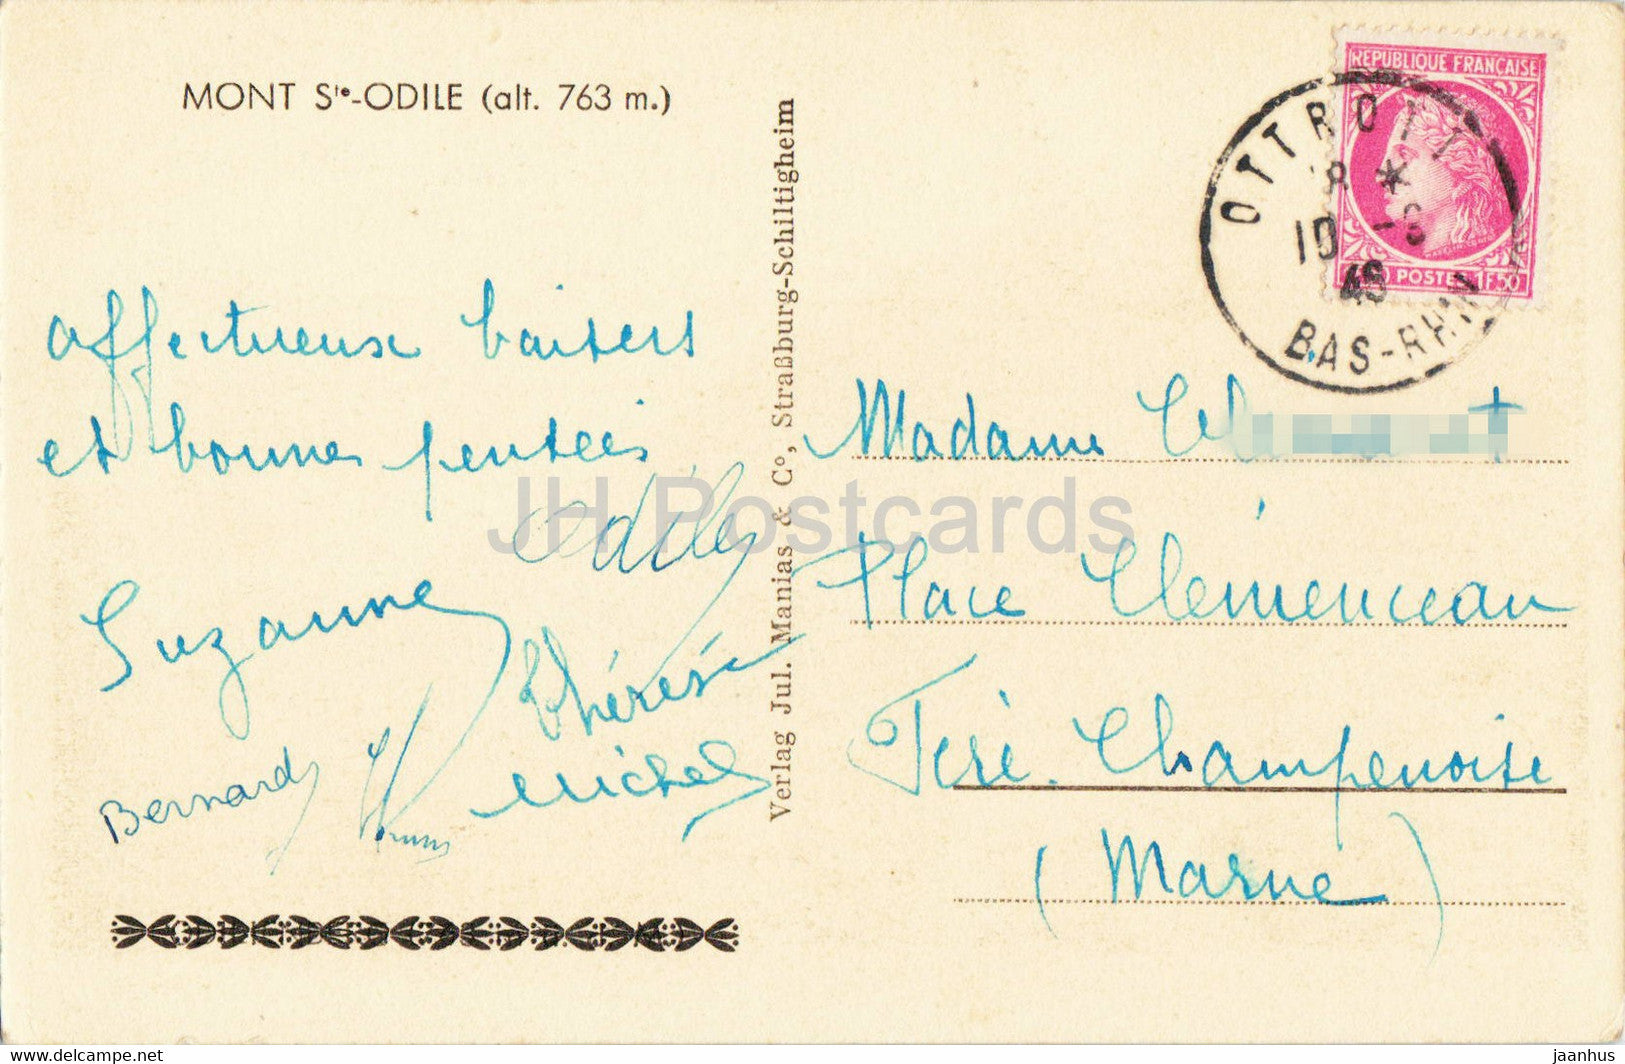 MONT Ste-ODILE (alt. 763 m.)
REPUBLIQUE FRANÇAISE
POSTES 1F50
OTTROTT
10 -
BAS-RHIN
Verlag Jul. Manias & Co, Straßburg-Schiltigheim
affectueux baisers
et bonnes pensées
Odile
Suzanne
Thérèse
Bernard
Michel
Madame
Place Clémenceau
Fère. Champenoise
(Marne)
JH Postcards
www.delcampe.net
jaanhus